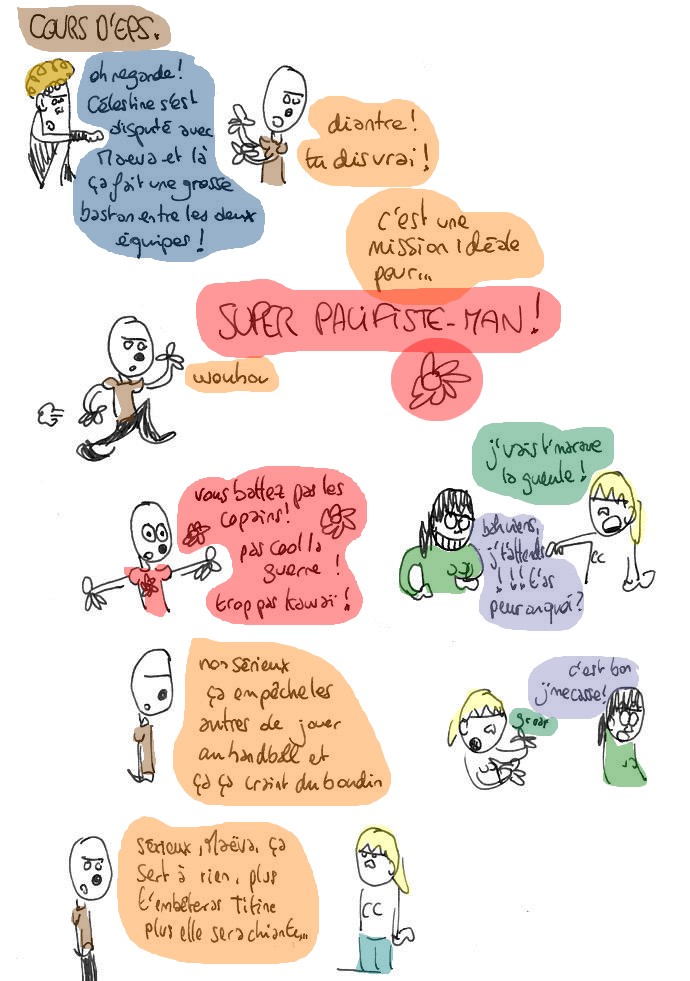 COURS D'EPS.
oh regarde!
Célestine s'est
disputé avec
Maeva et là
ça fait une grosse
baston entre les deux
équipes!
diantre!
tu dis vrai!
c'est une
mission idéale
pour...
SUPER PACIFISTE-MAN!
wouhou
j'vais t'marave
la gueule!
vous battez pas les
copains!
pas cool la
guerre!
trop pas kawaï!
bah viens,
j't'attends
!!! t'as
peur ou quoi?
CC
non sérieux
ça empêche les
autres de jouer
au handball et
ça ça craint du boudin
c'est bon
j'me casse!
groar
sérieux, Maëva, ça
sert à rien, plus
t'embêteras Titine
plus elle sera chiante...
CC